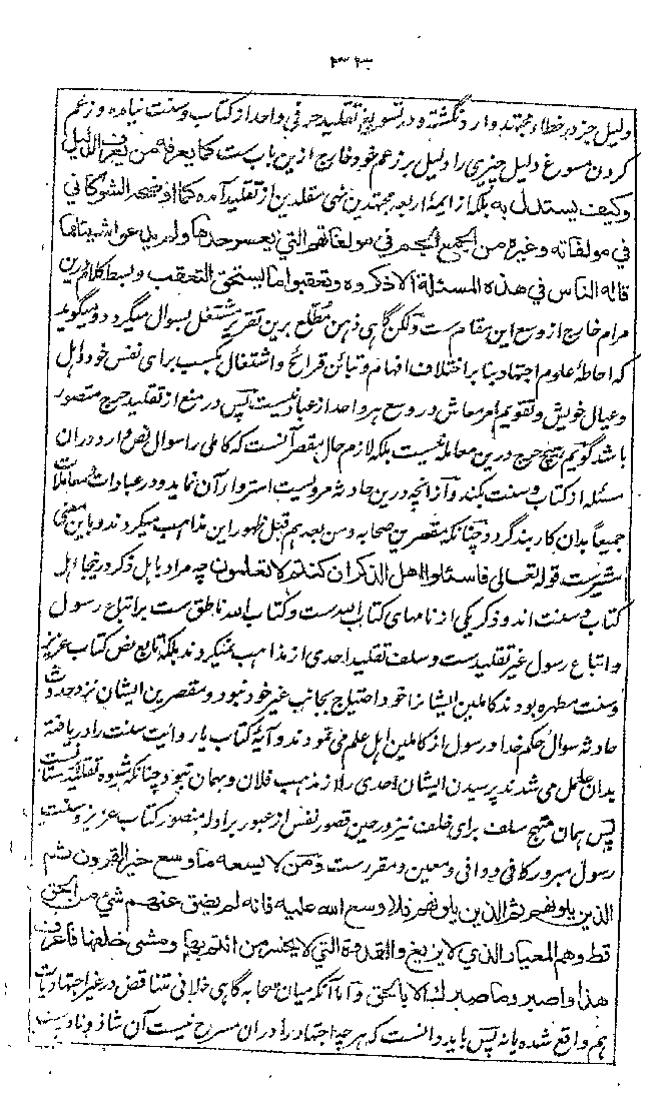 ۳۲۳
دلیل جز در خطاء مجتهد وارد نگشته و در تسویغ تقلید حرفی واحد از کتاب و سنت نیامده و زعم
کردن مسوغ دلیل چیزی را دلیل بر زعم خود خارج ازین باب ست کما یعرفه من یعرف الدلیل
وکیف یستدل به بلکه از ایمهٔ اربعه مجتهدین نهی مقلدین از تقلید آمده کما اوضحه الشوکانی فی
فی مولفاته وغیره من الجمع الجم فی مولفاتهم التی یعسر حدها ولم یدعوا شیئا مما
قاله الناس فی هذه المسئلة الا ذکروه وتعقبوا ما یستحق التعقب وبسط کلام درین
مرام خارج از وسع این مقام ست ولکن گاهی ذهن مطلع برین تقریر مشتغل بسوال میگردد و میگوید
که احاطهٔ علوم اجتهاد بنا بر اختلاف افهام و تبائن قرائح و اشتغال بکسب برای نفس خود و اهل
و عیال خویش و تقویم امر معاش در وسع هر واحد از عباد نیست پس در منع از تقلید حرج متصور
باشد گویم هیچ حرج درین معامله نیست بلکه لازم حال مقصر آنست که کاملی را سوال نص وارد دران
مسئله از کتاب و سنت بکند و آنچه درین حادثه مرویست استروار آن نماید و در عبادات و معاملات
جمیعاً بدان کاربند گردد چنانکه مقصرین صحابه ومن بعدهم قبل ظهور این مذاهب میکردند و باین معنی
مشیرست قوله تعالی فاسئلوا اهل الذکر ان کنتم لا تعلمون چه مراد باهل ذکر درینجا اهل
کتاب و سنت اند و ذکر یکی از نامهای کتاب الله ست و کتاب الله ناطق ست بر اتباع رسول
و اتباع رسول غیر تقلیدست و سلف تقلید احدی از مذاهب نمیکردند بلکه تابع نص کتاب عزیز
و سنت مطهره بودند کاملین ایشانرا خود احتیاج بجانب غیر خود نبود و مقصرین ایشان نزد حدوث
حادثه سوال حکم خدا و رسول از کاملین اهل علم می نمودند و آیهٔ کتاب یا روایت سنت را دریافته
بدان عمل می شدند پرسیدن ایشان احدی را از مذهب فلان و بهمان نبود چنانکه شیوه تقلیدیستان ست
پس همان منهج سلف برای خلف نیز در حین قصور نفس از عبور بر ادلهٔ منصور کتاب عزیز و سنت
رسول مبرور کافی و وافی و معین و مقررست ومن لا یسعه ما وسع خیر القرون ثم
الذین یلونهم ثم الذین یلونهم فلا وسع الله علیه فانه لم یضق عنهم شئ من الحق
قط وهم المعیار الذی لا یزیغ والقدوة التی لا یخسر من ائتم بها ومشی خلفها فاعرف
هذا واصبر وما صبرک الا بالحق و اما آنکه میان صحابه گاهی خلافی متناقض در غیر اجتهادیات
هم واقع شده یا نه پس باید دانست که هر چه اجتهاد را دران مسرح نیست آن شاذ و نادرست